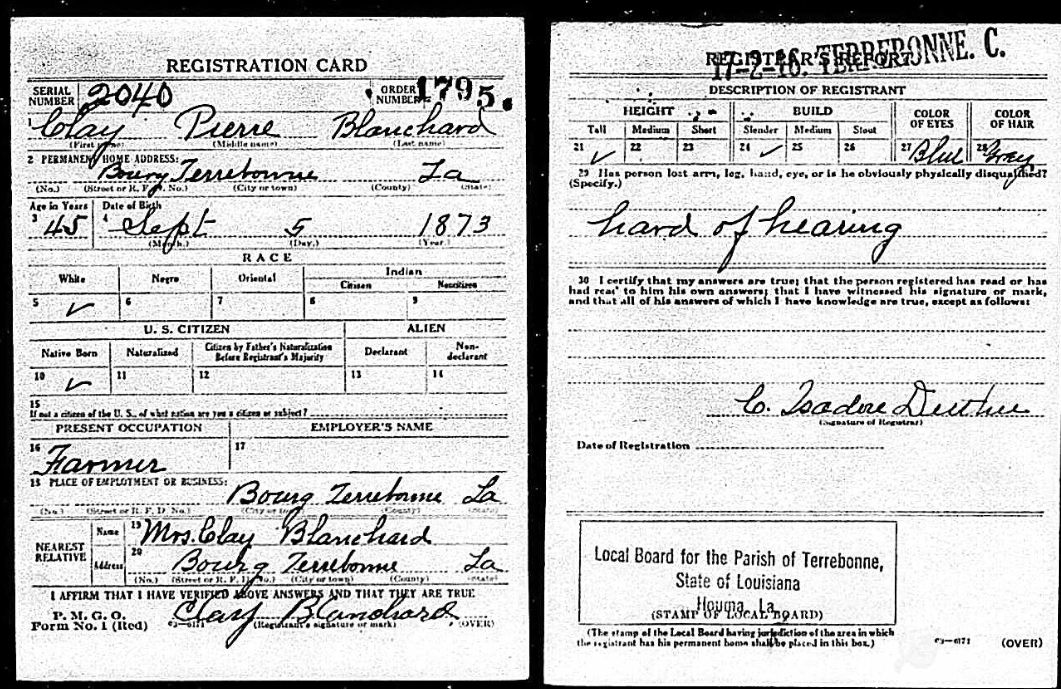 REGISTRATION CARD
SERIAL NUMBER 2040 ORDER NUMBER 1795.
1 Clay Pierre Blanchard
(First name) (Middle name) (Last name)
2 PERMANENT HOME ADDRESS:
Bourg Terrebonne La
(No.) (Street or R. F. D. No.) (City or town) (County) (State)
Age in Years Date of Birth
3 45 4 Sept 5 1873
(Month.) (Day.) (Year.)
RACE
White Negro Oriental Indian
Citizen Noncitizen
5 ✓ 6 7 8 9
U. S. CITIZEN ALIEN
Native Born Naturalized Citizen by Father's Naturalization Before Registrant's Majority Declarant Non-declarant
10 ✓ 11 12 13 14
15
If not a citizen of the U. S., of what nation are you a citizen or subject?
PRESENT OCCUPATION EMPLOYER'S NAME
16 Farmer 17
18 PLACE OF EMPLOYMENT OR BUSINESS:
Bourg Terrebonne La
(No.) (Street or R. F. D. No.) (City or town) (County) (State)
NEAREST RELATIVE Name 19 Mrs. Clay Blanchard
Address 20 Bourg Terrebonne La
(No.) (Street or R. F. D. No.) (City or town) (County) (State)
I AFFIRM THAT I HAVE VERIFIED ABOVE ANSWERS AND THAT THEY ARE TRUE
P. M. G. O.
Form No. 1 (Red) 03—6171 Clay Blanchard
(Registrant's signature or mark) (OVER)
REGISTRAR'S REPORT
17-2-16. TERREBONNE. C.
DESCRIPTION OF REGISTRANT
HEIGHT BUILD COLOR OF EYES COLOR OF HAIR
Tall Medium Short Slender Medium Stout
21 ✓ 22 23 24 ✓ 25 26 27 Blue 28 Gray
29 Has person lost arm, leg, hand, eye, or is he obviously physically disqualified?
(Specify.)
hard of hearing
30 I certify that my answers are true; that the person registered has read or has
had read to him his own answers; that I have witnessed his signature or mark,
and that all of his answers of which I have knowledge are true, except as follows:
C. Isadore
(Signature of Registrar)
Date of Registration
Local Board for the Parish of Terrebonne,
State of Louisiana
Houma, La.
(STAMP OF LOCAL BOARD)
(The stamp of the Local Board having jurisdiction of the area in which
the registrant has his permanent home shall be placed in this box.)
03—6171 (OVER)